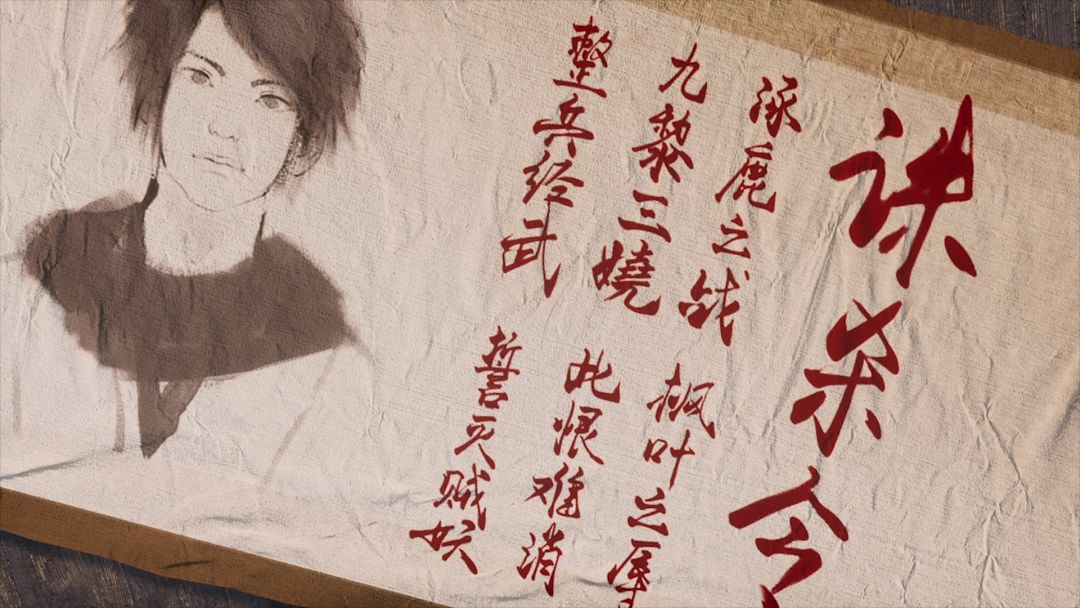 诛杀令
涿鹿之战 枫叶之辱
九黎三嬈 此恨难消
整兵经武 誓灭贼妖